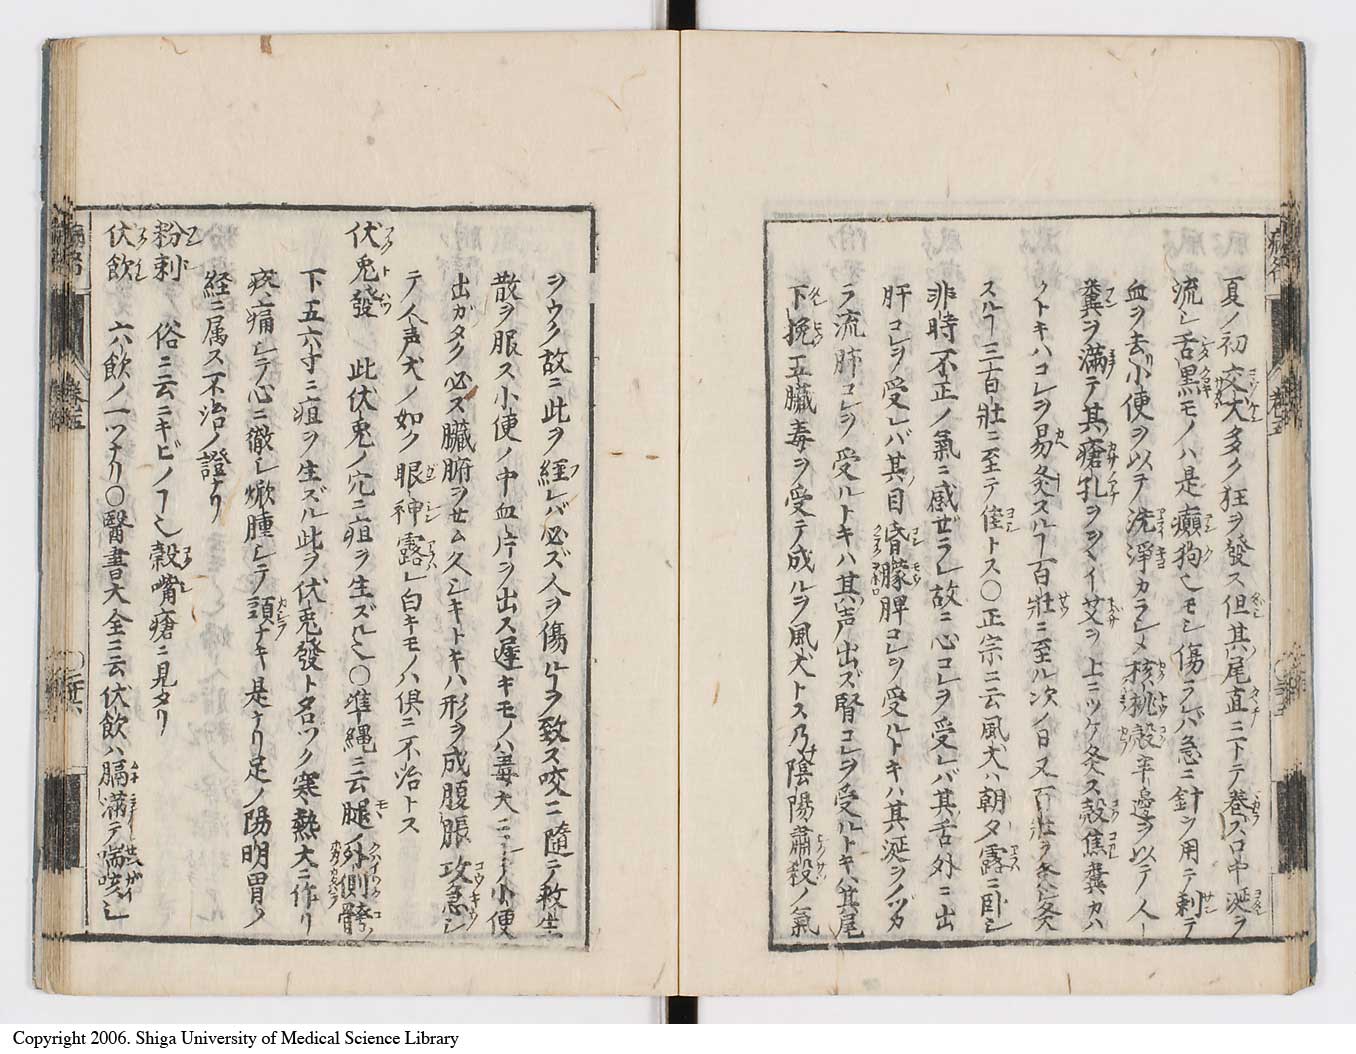 夏ノ初交犬多ク狂ヲ發ス但其尾直ニトテ巻ス口中涎ヲ
流シ舌黒モノハ是癲狗也モシ傷ラレバ急ニ針ヲ用テ刺テ
血ヲ去小便ヲ以テ洗淨カラシメ核桃殼半邊ヲ以テ人ノ
糞ヲ滿テ其瘡孔ヲヲイ艾ヲ上ニツケ灸ス殼焦糞カハ
クトキハコレヲ易灸スルヿ百壯ニ至ル次ノ日又百壯ヲ灸灸
スルヿ三百壯ニ至テ佳トス〇正宗ニ云風犬ハ朝夕露ニ臥シ
非時不正ノ氣ニ感ゼラレ故ニ心コレヲ受レバ其舌外ニ出
肝コレヲ受レバ其目昏朦脾コレヲ受ルトキハ其涎ヲノヅカ
ラ流肺コレヲ受ルトキハ其声出ズ腎コレヲ受ルトキハ其尾
下挽五臟毒ヲ受テ成ルヲ風犬トス乃陰陽肅殺ノ氣
ヲウク故ニ此ヲ經レバ必ズ人ヲ傷ルヿヲ致ス咬ニ隨テ救生
散ヲ服ス小便ノ中血片ヲ出ス遲キモノハ毒大ニシテ小便
出ガタク必ス臟腑ヲせム久シキトキハ形ヲ成腹脹攻急シ
テ人声犬ノ如ク眼神露レ白キモノハ俱ニ不治トス
伏兎發 此伏兎ノ穴ニ疽ヲ生ズル也〇準繩ニ云腿ノ外側骻骨ノ
下五六寸ニ疽ヲ生ズル此ヲ伏兎發ト名ツク寒熱大ニ作リ
疼痛シテ心ニ徹シ焮腫シテ頭ナキ是ナリ足ノ陽明胃ノ
経ニ属ス不治ノ證ナリ
粉刺 俗ニ云ニキビノヿ也穀嘴瘡ニ見タリ
伏飲 六飲ノ一ツナリ〇醫書大全ニ云伏飲ハ膈滿テ喘咳シ
卷五
Copyright 2006. Shiga University of Medical Science Library